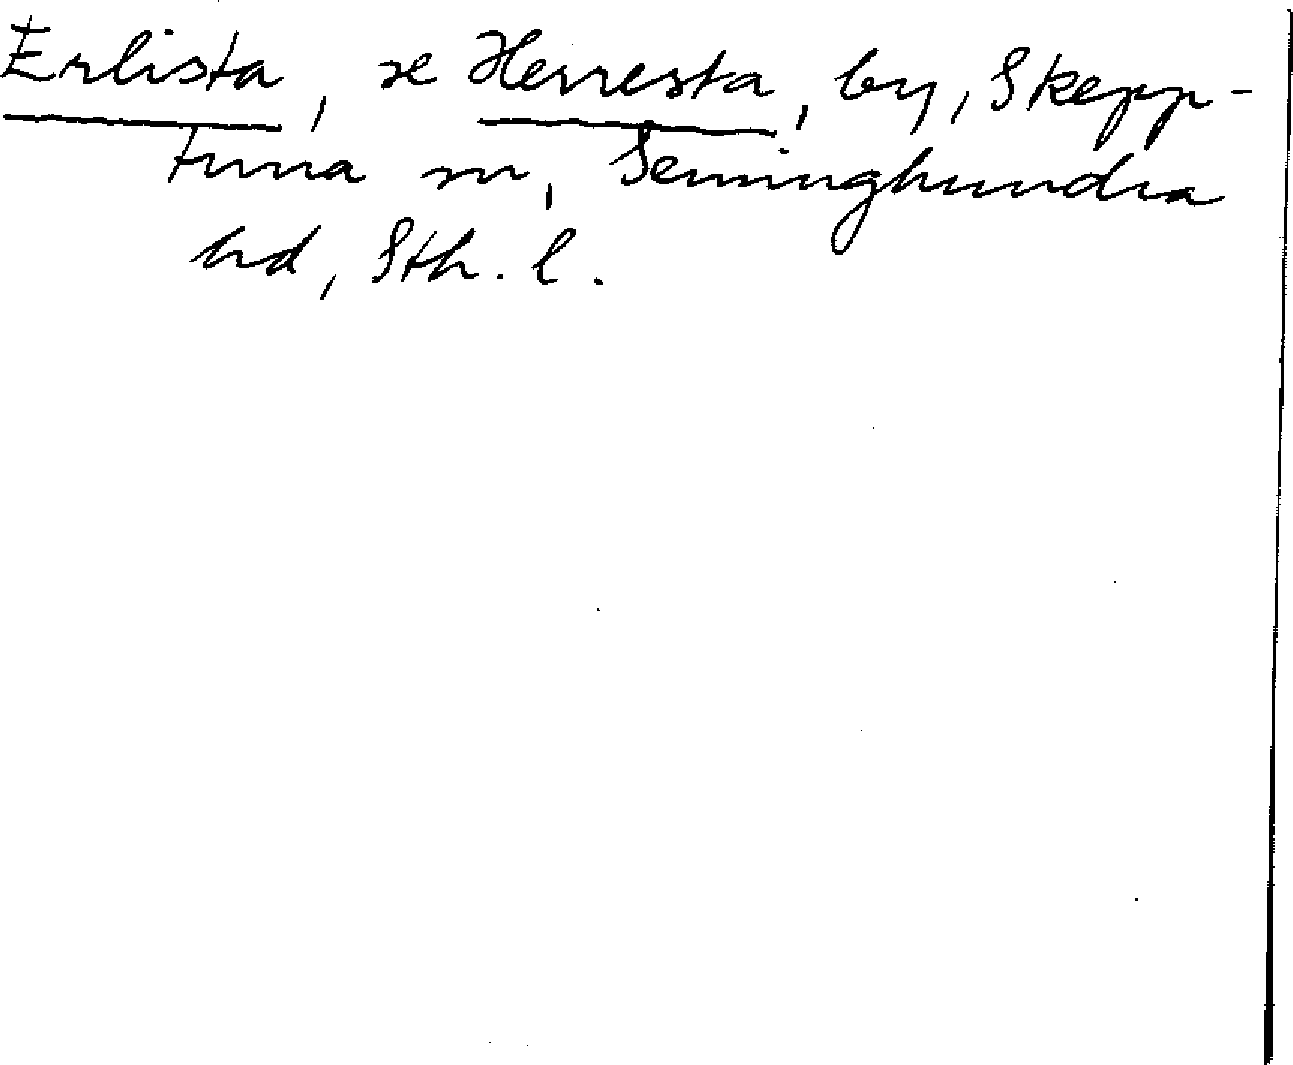 Erlista, se Herresta, by, Skepp-
tuna sn, Seminghundra
hd, Sth. l.